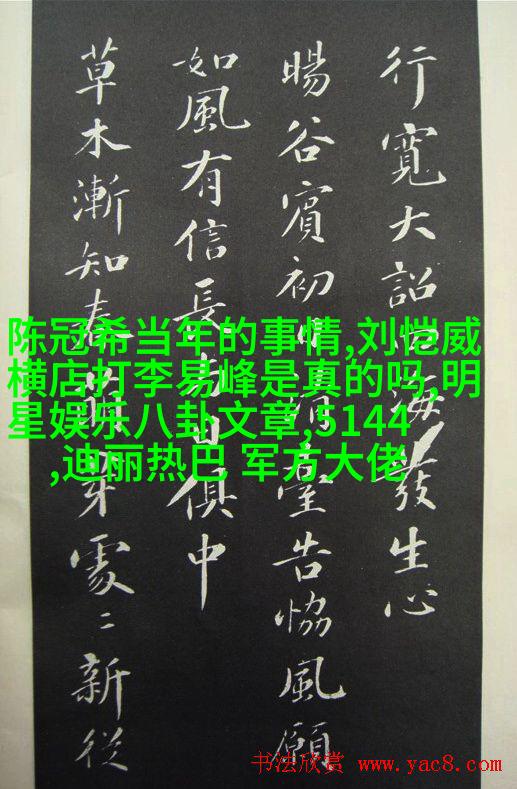 行寬大詔四海發生心
暘谷賓初日清臺告協風願
如風有信長與日俱中
草木漸知春萌芽處〻新從
陈冠希当年的事情,刘恺威
横店打李易峰是真的吗,明
星娱乐八卦文章,5144
,迪丽热巴 军方大佬
书法欣赏 www.yac8.com